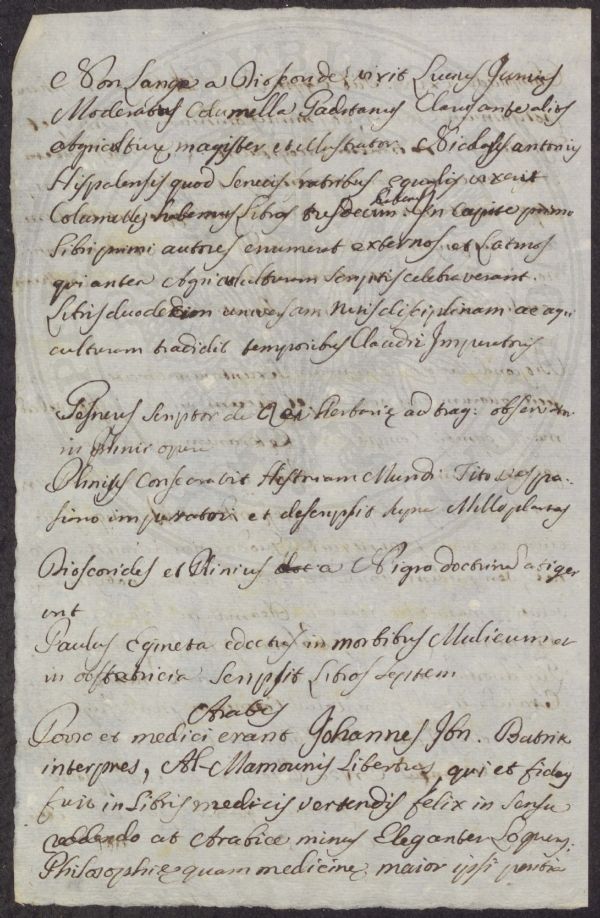 Non Longe a Dioscoride vixit Lucius Junius
Moderatus Columella Gaditanus Clarus ante alios
Agriculturę magister et illustrator. Nicholaus antonius
Hispalensis quod Senecis fratribus equalis vixerit
Columelles habemus Libros tresdecim habemus In Capite primo
libri primi autores enumerat externos et Latinos
qui antea Agriculturam scriptis celebraverant.
Libris duodecim universam rusis disciplinam ac agri
culturam tradidit temporibus Claudii Imperatoris
Gesnerus scriptor de Rei Herbarię ad trag: observ
in plinii opere
Plinius Consecravit Hystriam Mundi Tito Vespa-
siono imperatori et descripsit supra Mille plantas
Dioscorides et Plinius a Nigro doctrina
unt
Paulus Egineta edoctus in morbibus Mulierum et
in obstetricia scripsit Libros septem
Arabes
Porro et medici erant Johannes Ibn. Batrik
interpres, Al-Mamounis Libertus, qui et fidey
fuit in Libris medicis vertendis felix in sensu
reddendo at Arabice minus Eleganter Loquens;
Philosophię quam medicinę maior ipsi peritia